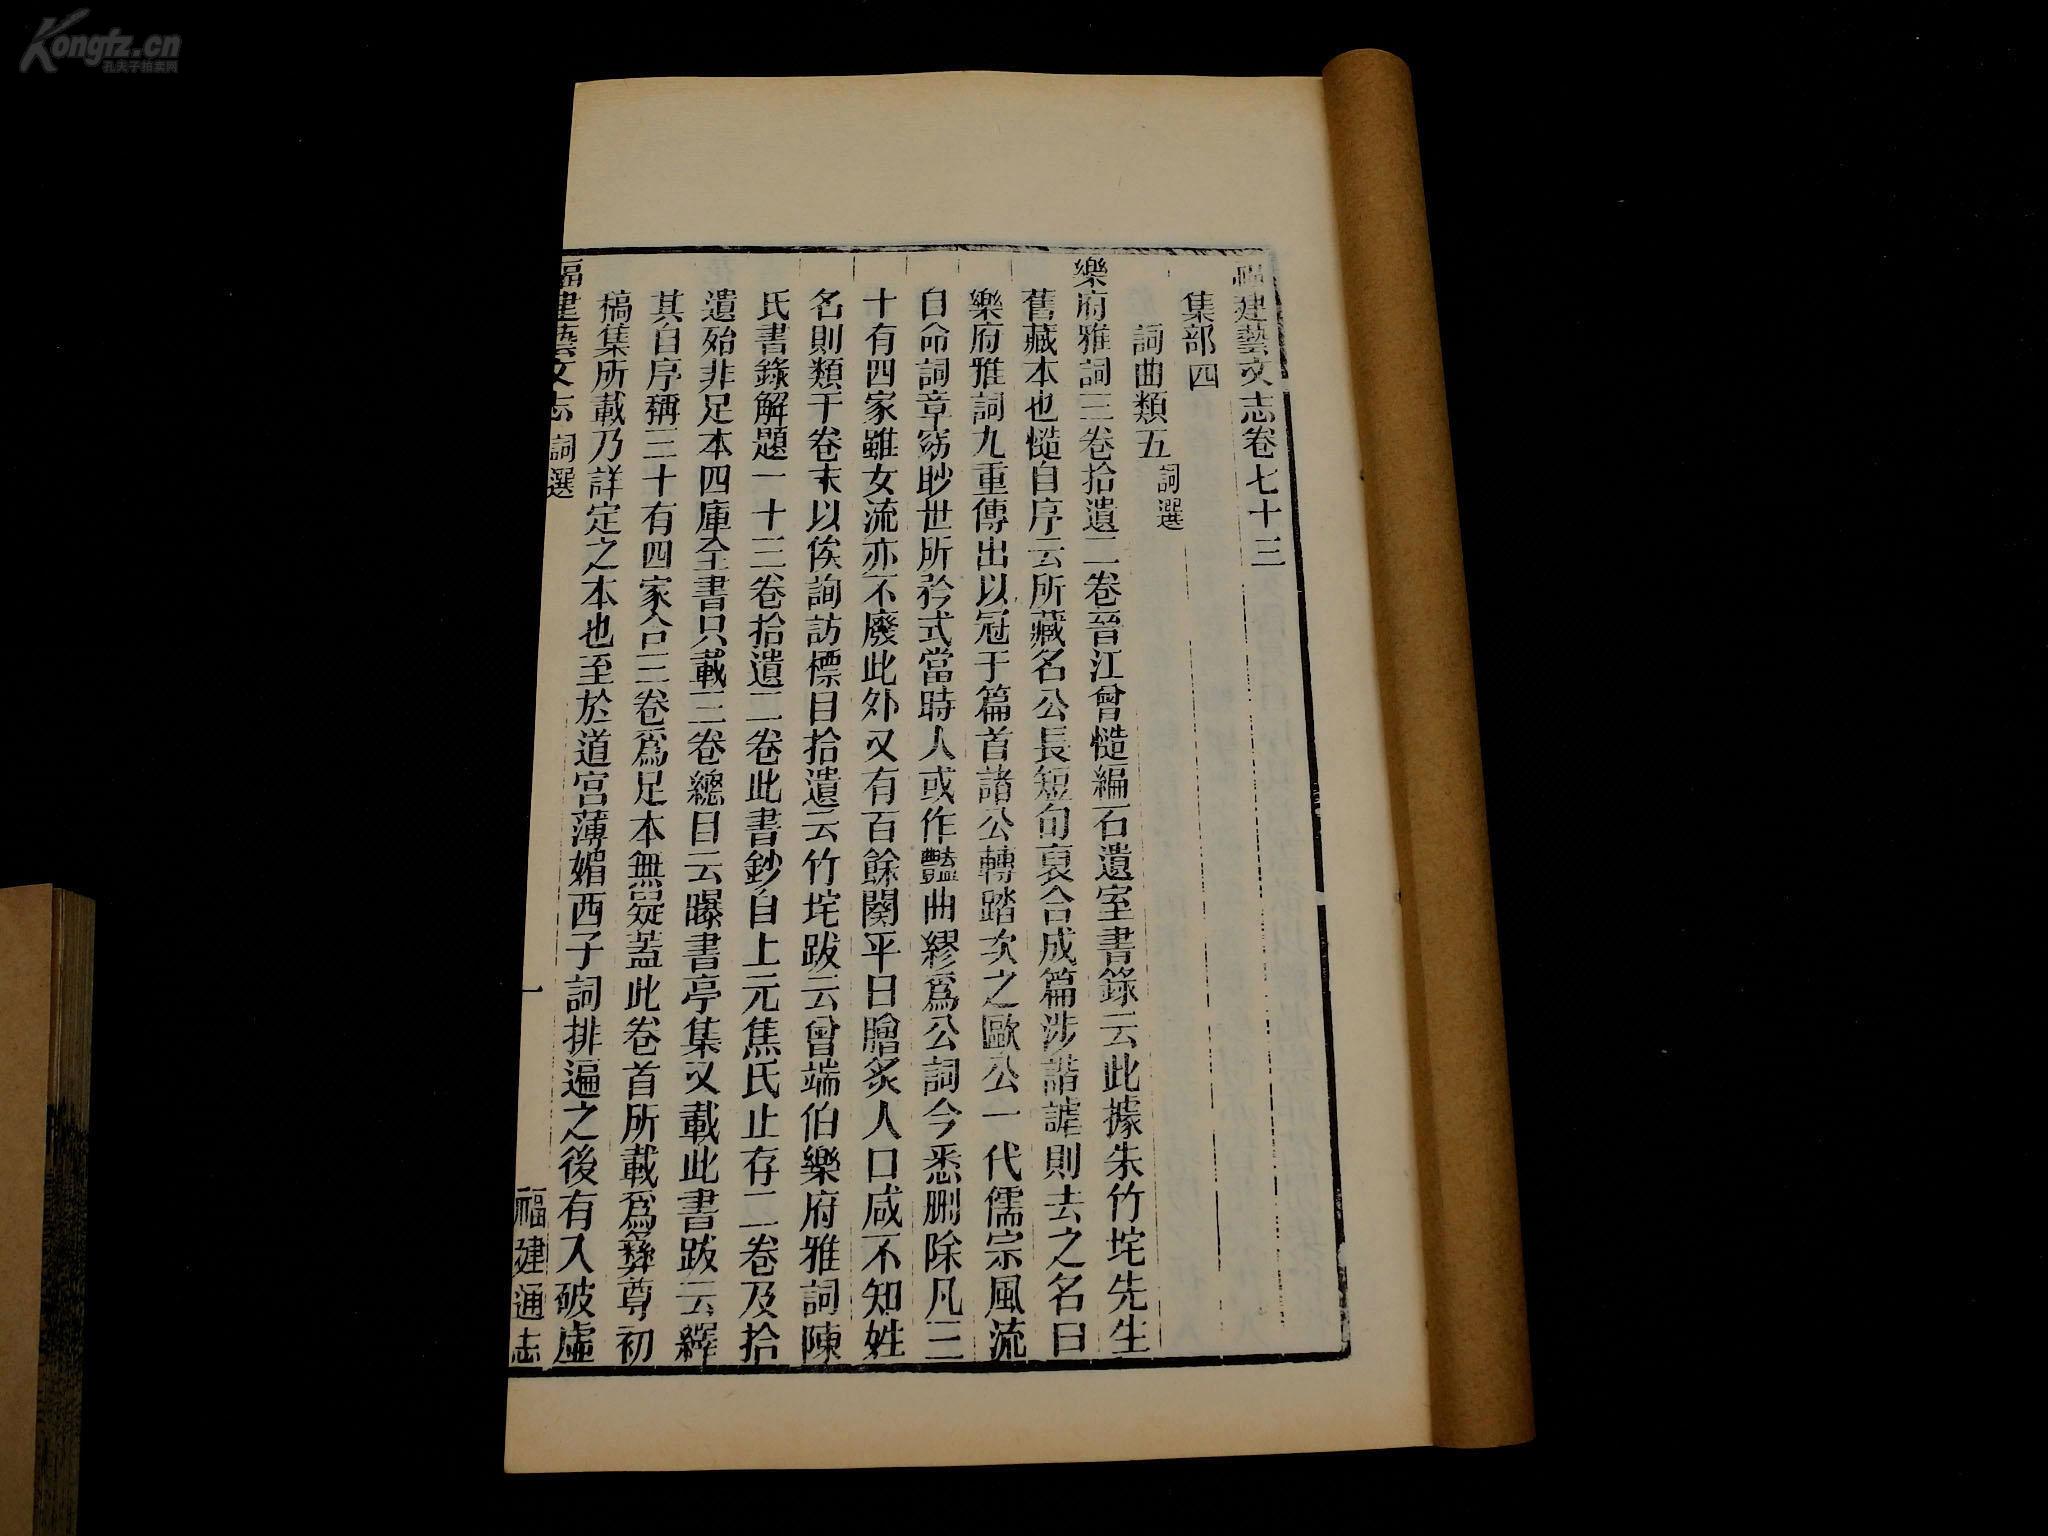 福建藝文志卷七十三
集部四
詞曲類五 詞選
樂府雅詞三卷拾遺二卷晉江曾慥編石遺室書錄云此據朱竹垞先生
舊藏本也慥自序云所藏名公長短句裒合成篇涉諧謔則去之名曰
樂府雅詞九重傳出以冠于篇首諸公轉踏次之歐公一代儒宗風流
自命詞章窈眇世所矜式當時人或作豔曲繆爲公詞今悉刪除凡三
十有四家雖女流亦不廢此外又有百餘闋平日膾炙人口咸不知姓
名則類于卷末以俟詢訪標目拾遺云竹垞跋云曾端伯樂府雅詞陳
氏書錄解題一十三卷拾遺二卷此書鈔自上元焦氏止存二卷及拾
遺殆非足本四庫全書只載三卷總目云曝書亭集又載此書跋云繹
其自序稱三十有四家合三卷爲足本無疑蓋此卷首所載爲彝尊初
稿集所載乃詳定之本也至於道宮薄媚西子詞排遍之後有入破虛
福建藝文志 詞選
一
福建通志
Kongfz.cn
孔夫子拍卖网